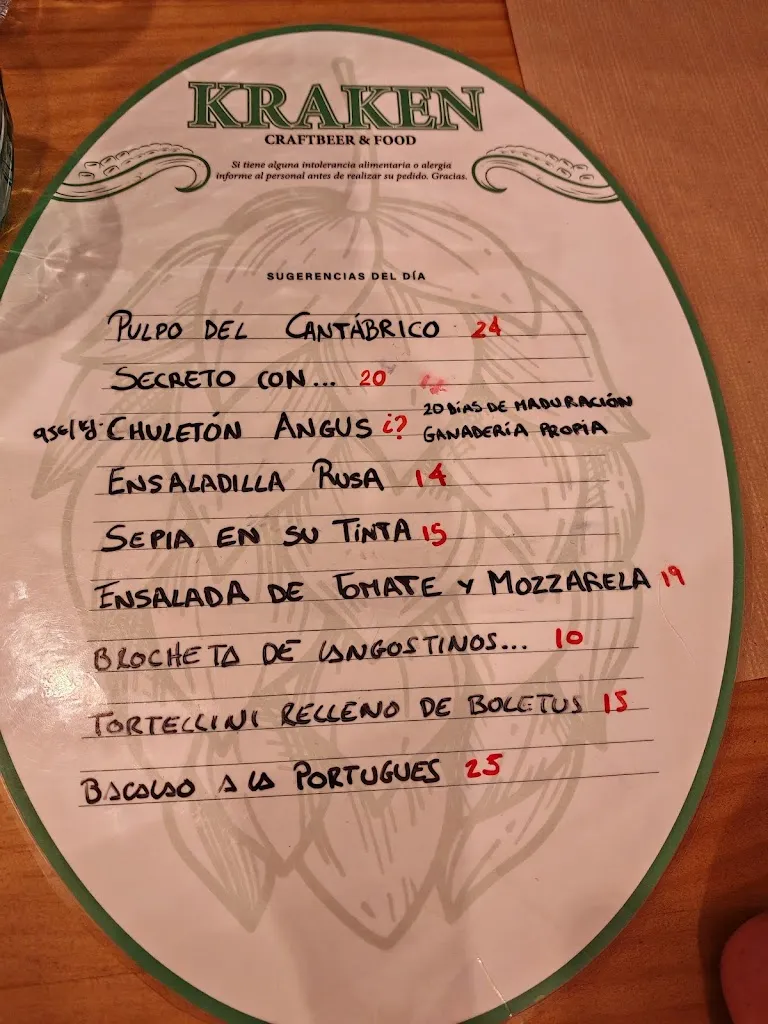 KRAKEN
CRAFTBEER & FOOD
Si tiene alguna intolerancia alimentaria o alergia
informe al personal antes de realizar su pedido. Gracias.
SUGERENCIAS DEL DÍA
PULPO DEL CANTÁBRICO 24
SECRETO CON... 20
CHULETÓN ANGUS ¿? 20 DÍAS DE MADURACIÓN
GANADERÍA PROPIA
ENSALADILLA RUSA 14
SEPIA EN SU TINTA 15
ENSALADA DE TOMATE Y MOZZARELA 19
BROCHETA DE LANGOSTINOS... 10
TORTELLINI RELLENO DE BOLETUS 15
BACALAO A LA PORTUGUES 25